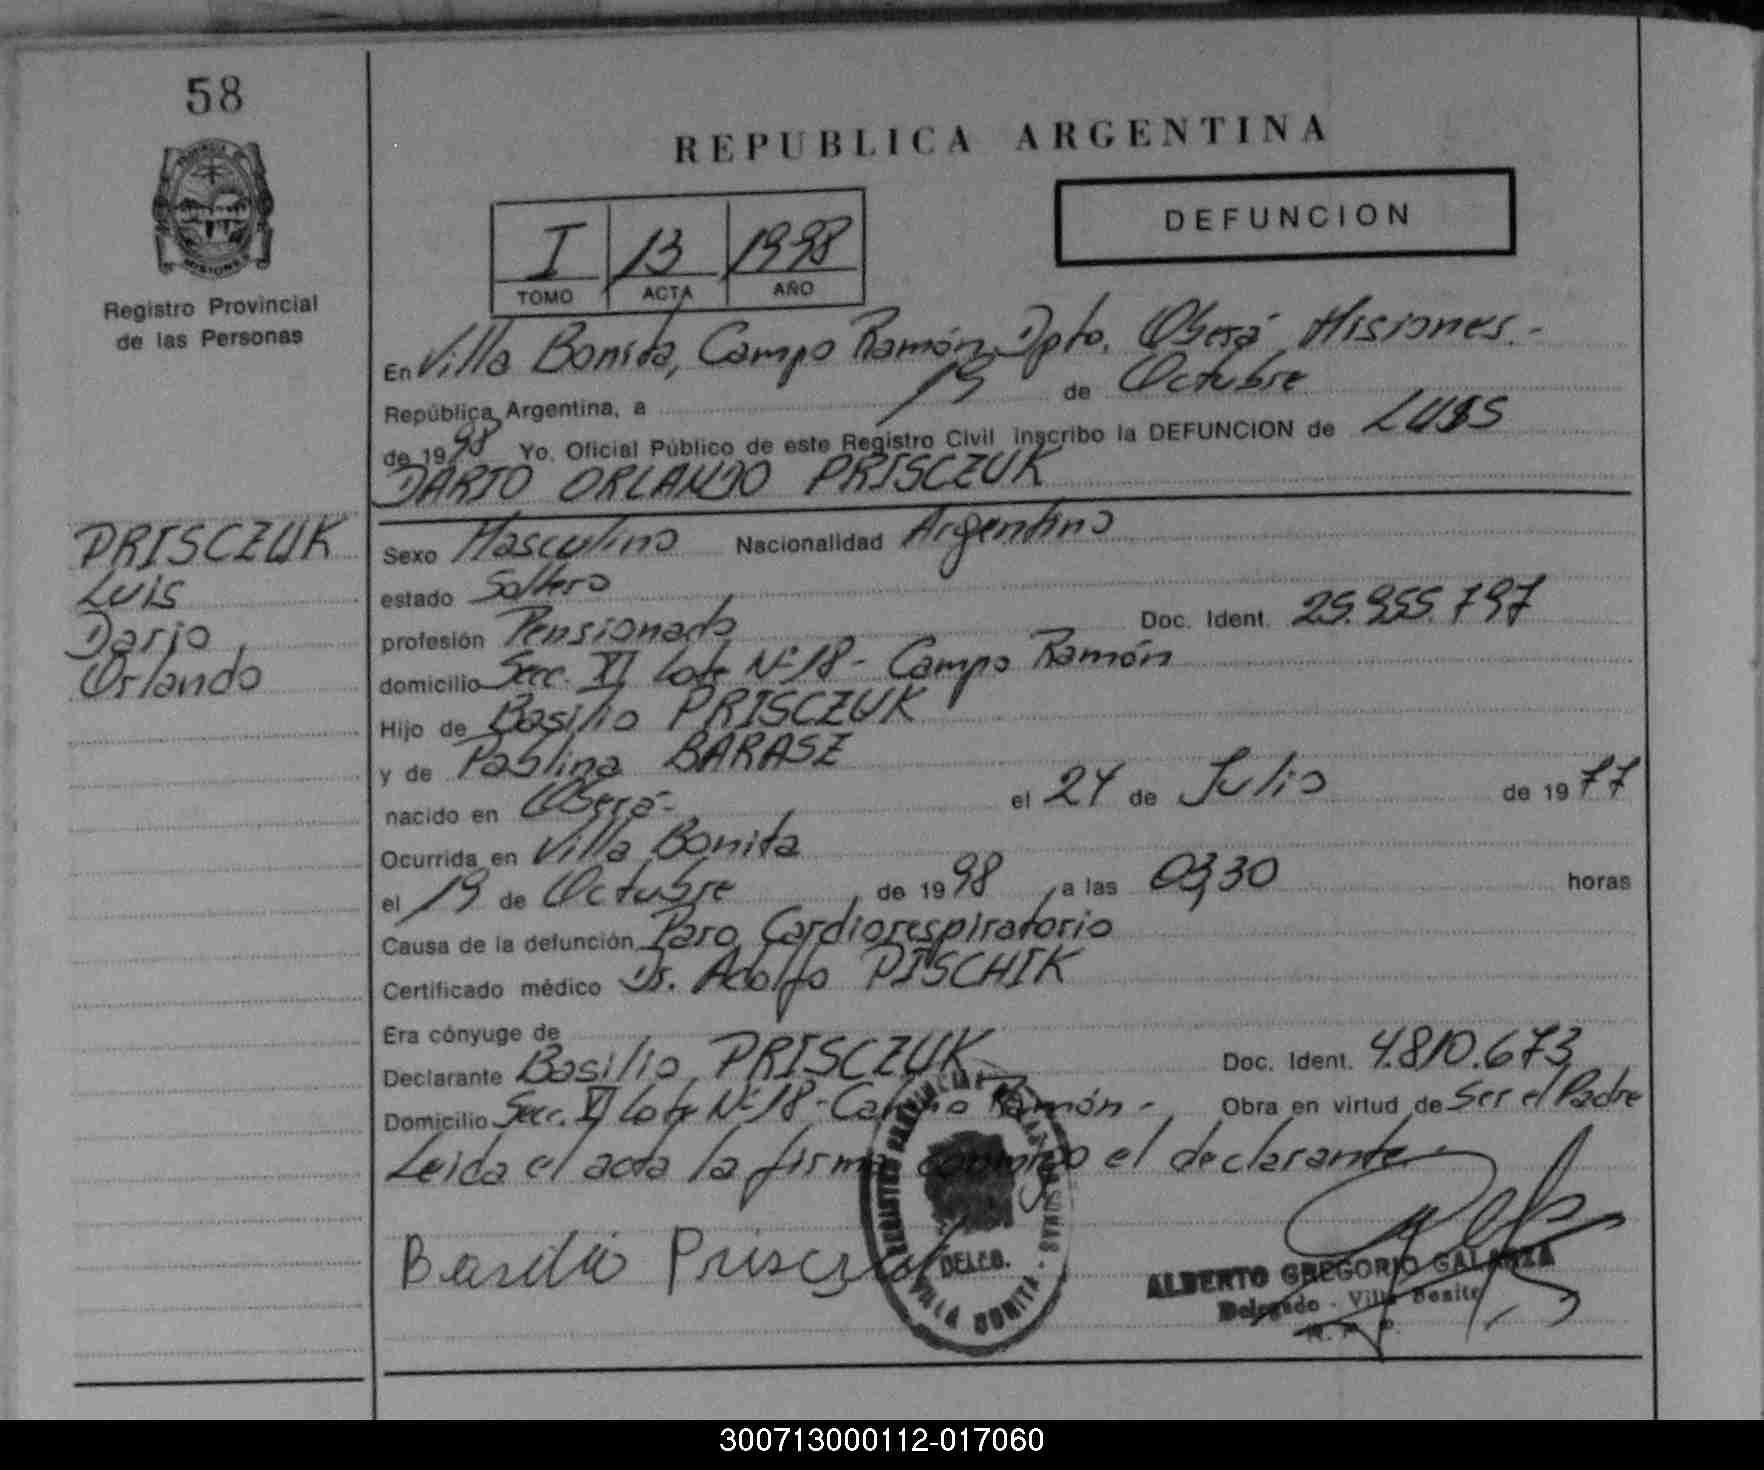 58
Registro Provincial
de las Personas
PRISCZUK
Luis
Dario
Orlando
REPUBLICA ARGENTINA
DEFUNCION
I 13 1998
TOMO ACTA AÑO
En Villa Bonita, Campo Ramón, Dpto. Oberá Misiones.-
República Argentina, a 19 de Octubre
de 1998 Yo, Oficial Público de este Registro Civil inscribo la DEFUNCION de LUIS
DARIO ORLANDO PRISCZUK
Sexo Masculino Nacionalidad Argentino
estado Soltero
profesión Pensionado Doc. Ident. 25.955.797
domicilio Secc. VI Lote Nº 18- Campo Ramón
Hijo de Basilio PRISCZUK
y de Paulina BARASZ
nacido en Oberá- el 24 de Julio de 1977
Ocurrida en Villa Bonita
el 19 de Octubre, de 1998, a las 03,30 horas
Causa de la defunción Paro Cardiorespiratorio
Certificado médico Dr. Adolfo PISCHIK
Era cónyuge de
Declarante Basilio PRISCZUK Doc. Ident. 4.810.673
Domicilio Secc. VI Lote Nº 18- Campo Ramón- Obra en virtud de Ser el Padre
Leida el acta la firma conmigo el declarante.-
Basilio Prisczuk
DELEG.
VILLA BONITA
ALBERTO GREGORIO GALARZA
Delegado - Villa Bonita
R. P. P.
300713000112-017060